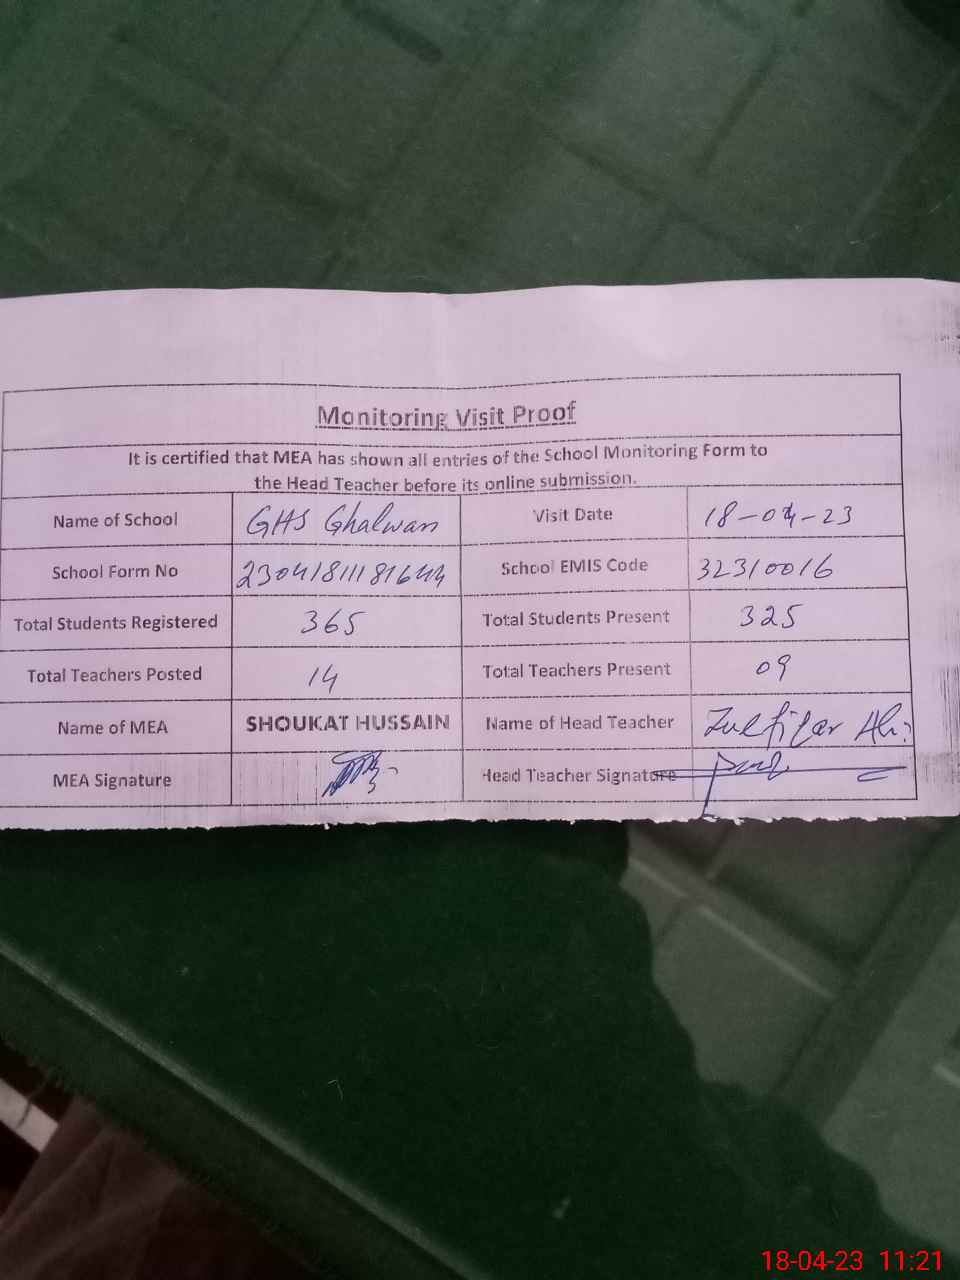 Monitoring Visit Proof
It is certified that MEA has shown all entries of the School Monitoring Form to
the Head Teacher before its online submission.
Name of School GHS Ghalwan Visit Date 18-04-23
School Form No 23041811181644 School EMIS Code 32310016
Total Students Registered 365 Total Students Present 325
Total Teachers Posted 14 Total Teachers Present 09
Name of MEA SHOUKAT HUSSAIN Name of Head Teacher Zulfiqar Ali
MEA Signature Head Teacher Signature
18-04-23 11:21